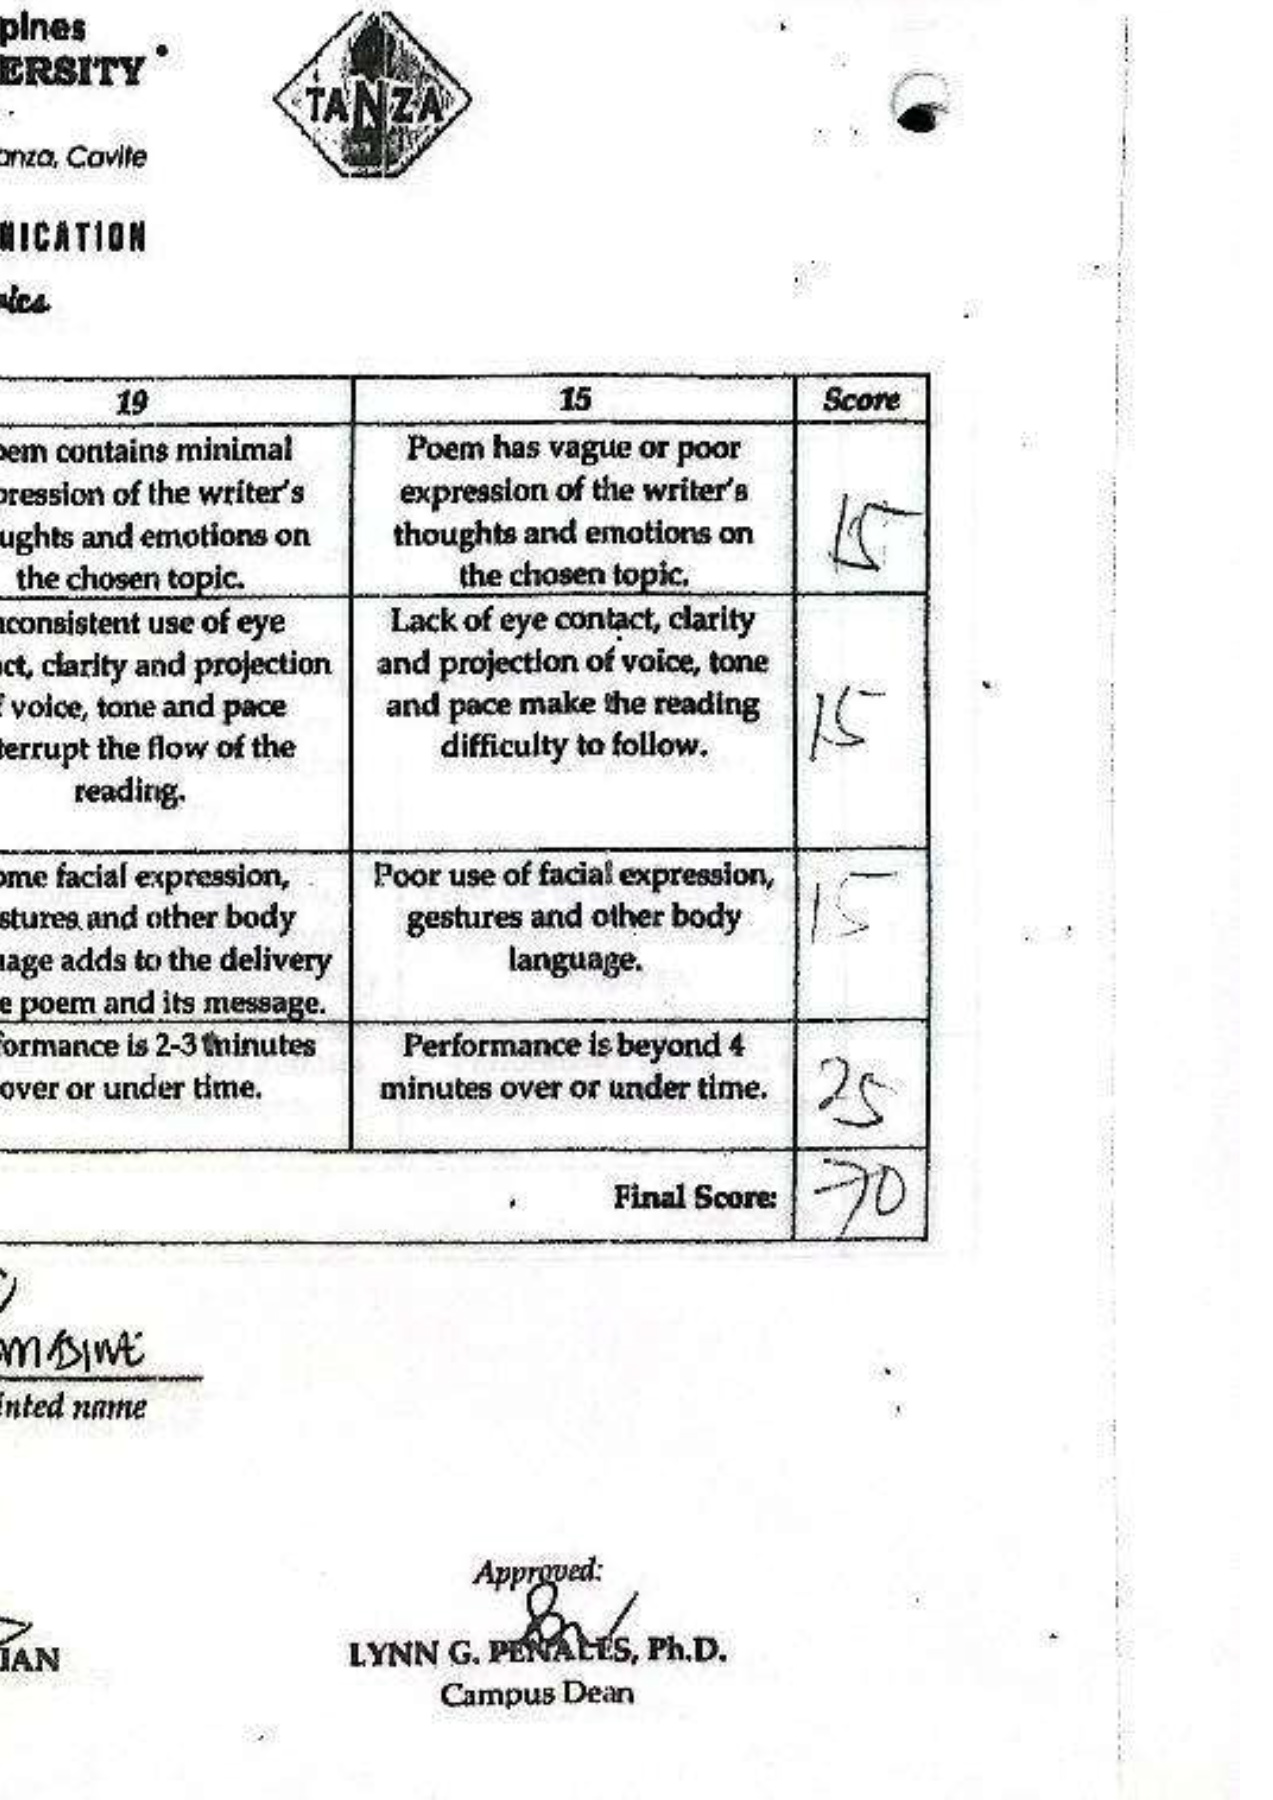 pines
ERSITY
TANZA
anza, Cavite
NICATION
19
15
Score
oem contains minimal
pression of the writer's
ughts and emotions on
the chosen topic.
Poem has vague or poor
expression of the writer's
thoughts and emotions on
the chosen topic.
15
nconsistent use of eye
act, clarity and projection
f voice, tone and pace
terrupt the flow of the
reading.
Lack of eye contact, clarity
and projection of voice, tone
and pace make the reading
difficulty to follow.
15
ome facial expression,
stures and other body
uage adds to the delivery
e poem and its message.
Poor use of facial expression,
gestures and other body
language.
15
formance is 2-3 minutes
over or under time.
Performance is beyond 4
minutes over or under time.
25
Final Score:
70
inted name
Approved:
IAN
LYNN G. PENALES, Ph.D.
Campus Dean